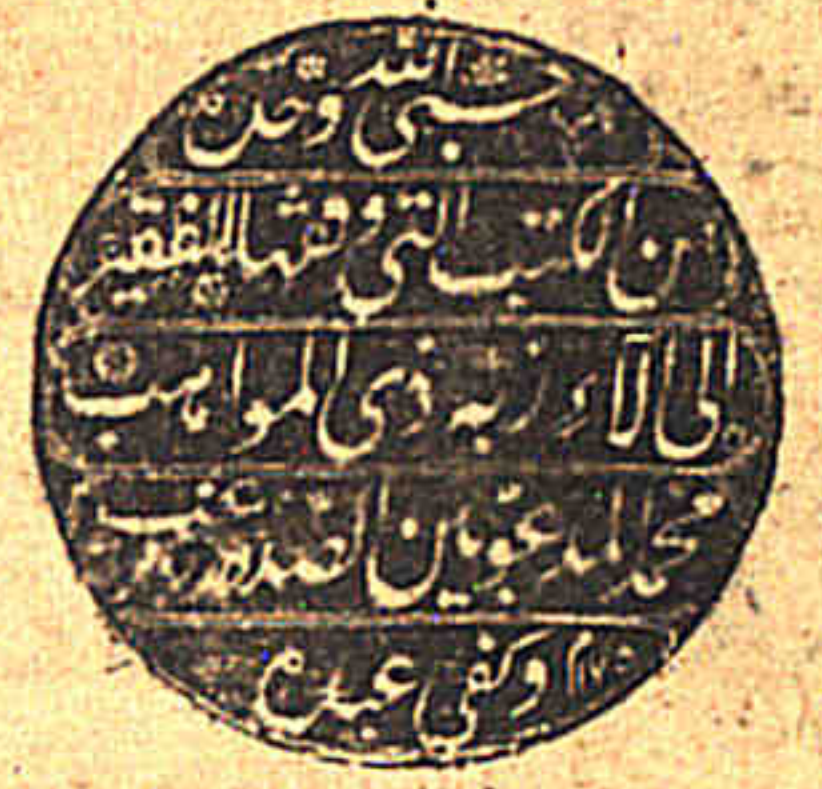 حسبي الله وحده
من الكتب التي وقفها الفقير
الى آلاء ربه ذي المواهب
محمد المدعو بين الصدور
وكفى عبده